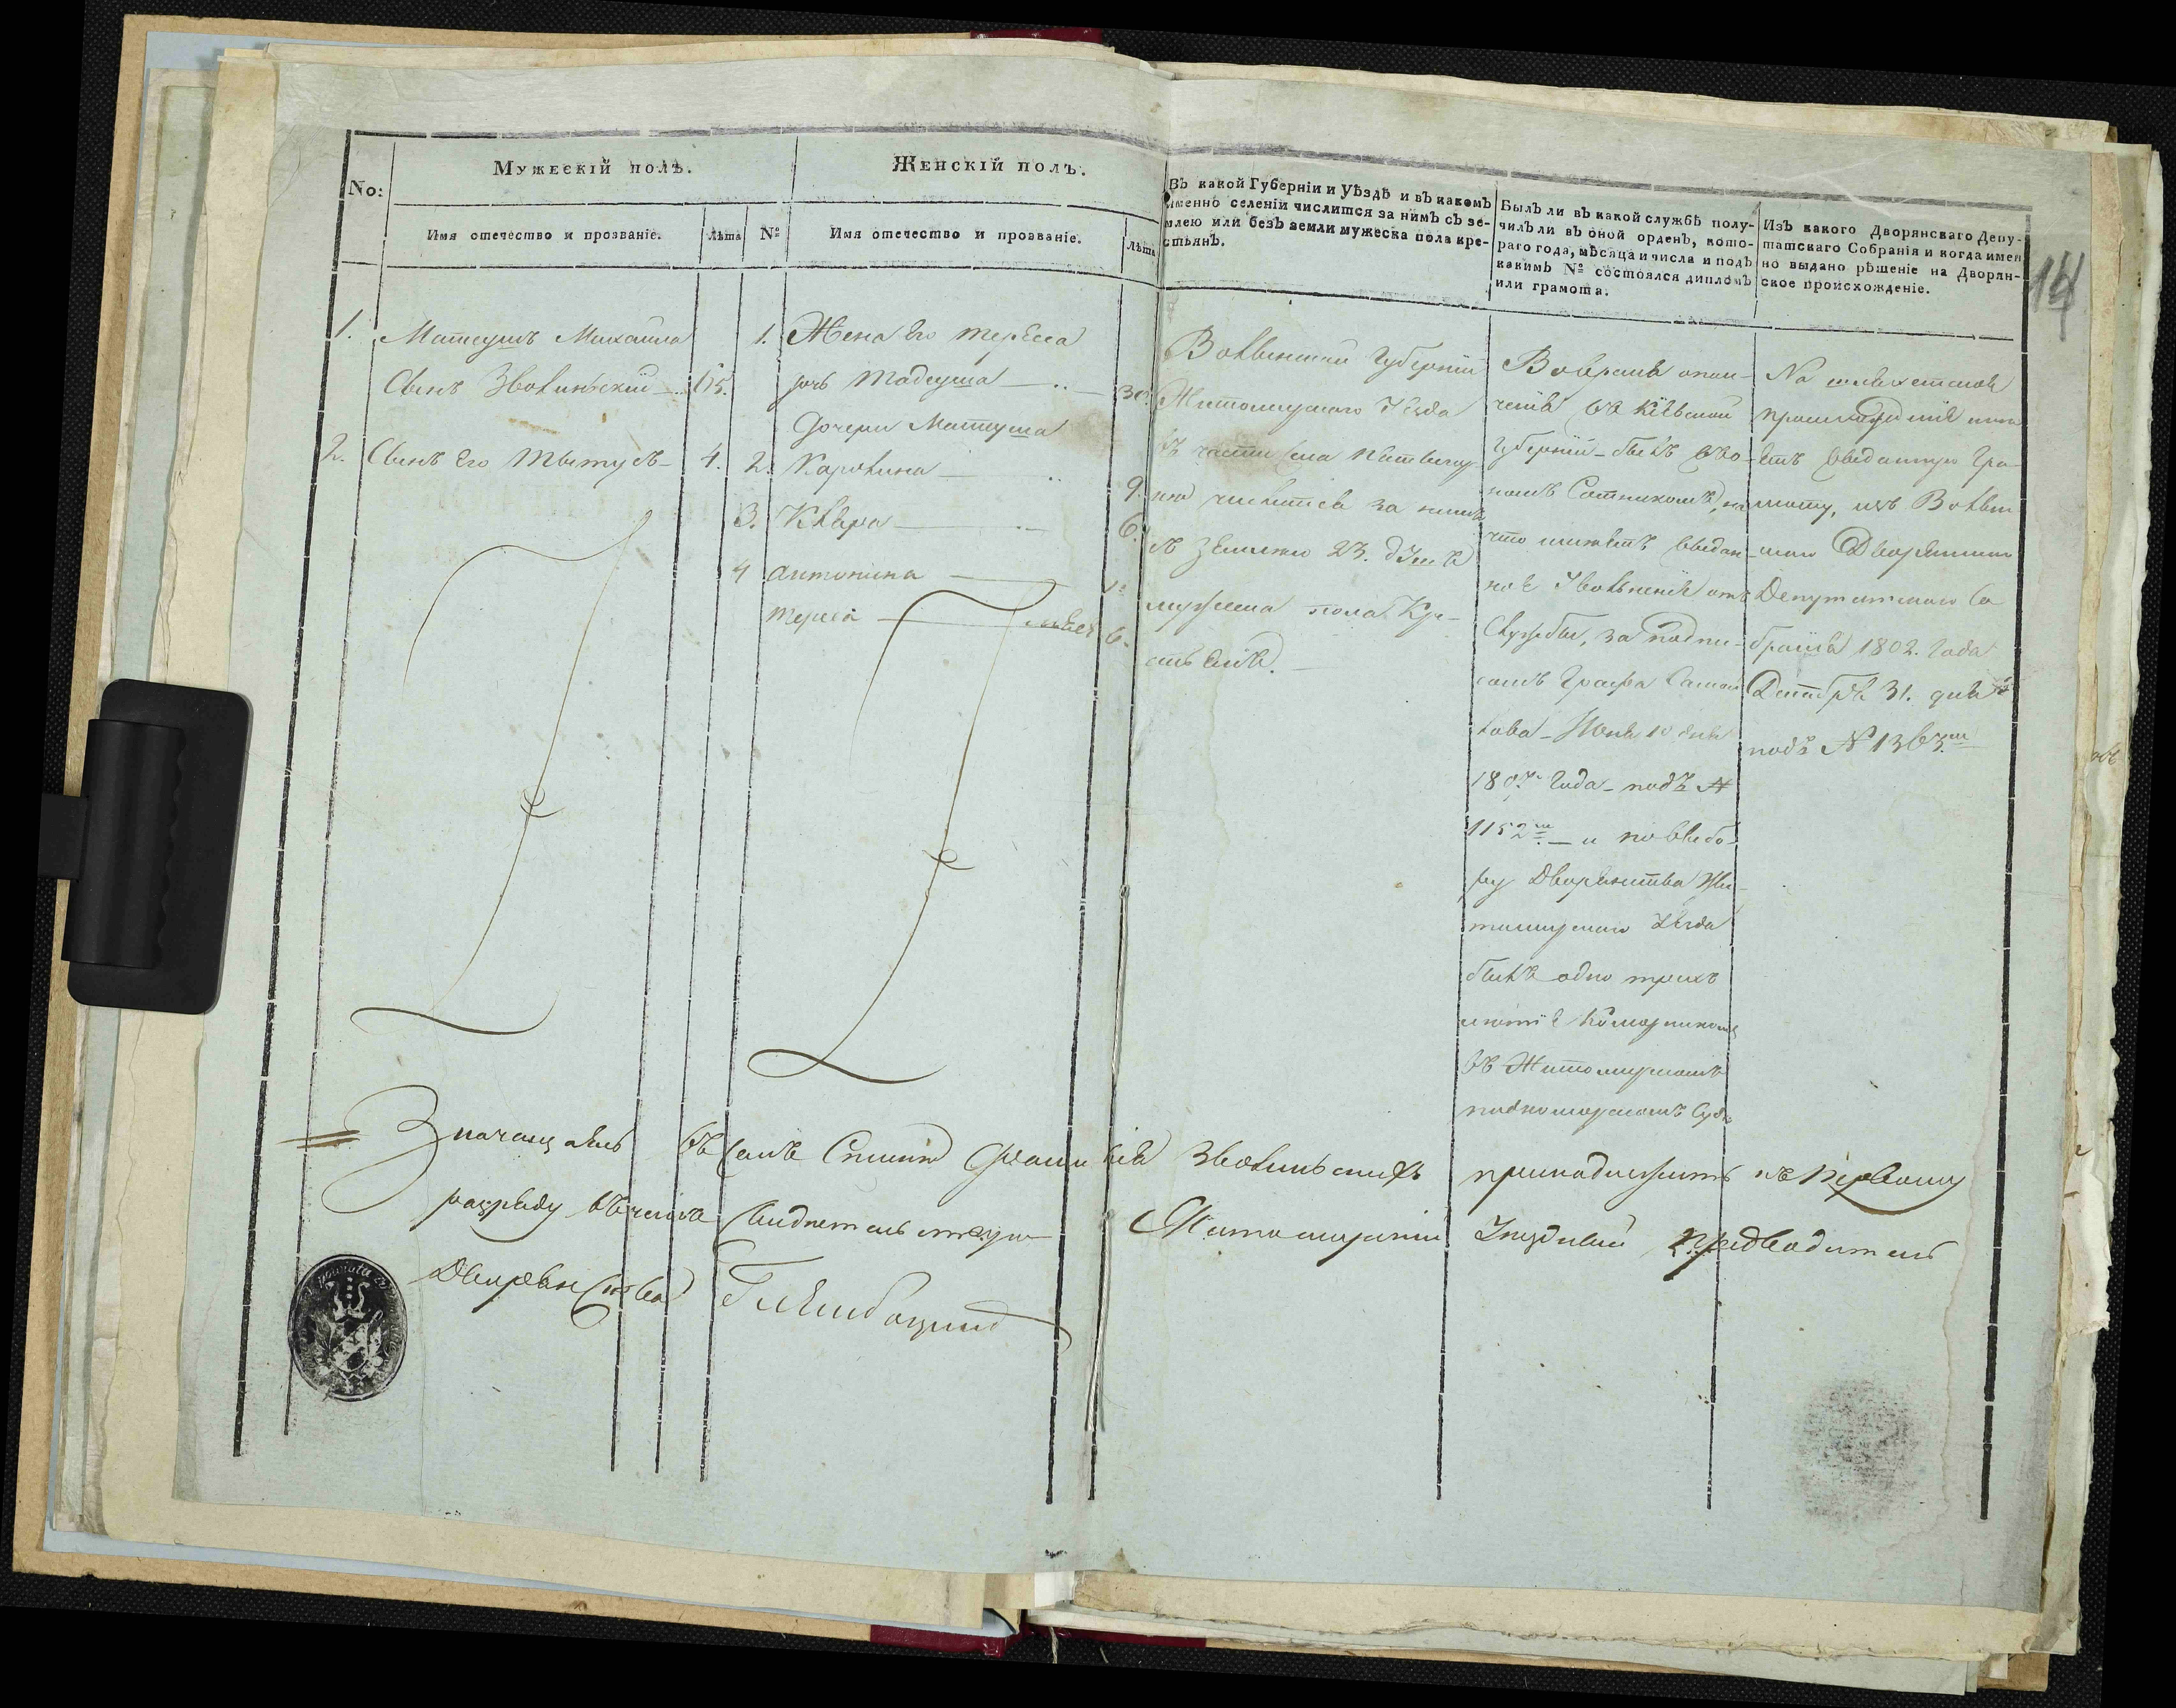 14
No:
Мужескій полъ.
Женскій полъ.
Имя отечество и прозваніе.
Лѣта
№
Имя отечество и прозваніе.
Лѣта
Въ какой Губерніи и Уѣздѣ и въ какомъ
именно селеніи числится за нимъ съ зе-
млею или безъ земли мужеска пола кре-
стьянъ.
Былъ ли въ какой службѣ полу-
чилъ ли въ оной орденъ, кото-
раго года, мѣсяца и числа и подъ
какимъ № состоялся дипломъ
или грамота.
Изъ какого Дворянскаго Депу-
татскаго Собранія и когда имен
но выдано рѣшеніе на Дворян-
ское происхожденіе.
1. Матеушъ Михаила
Сынъ Зволинскій
2. Сынъ Его Тытусъ 4.
1. Жена Его Тереса
дочь Тадеуша 30.
Дочери Матеуша
2. Каролина 9.
3. Клара 6.
4 Антонина
Тереса 6.
Волынской Губерніи
Житомирскаго Уѣзда
въ части села
числится за нимъ
съ землею 23. душъ
мужеска пола Кре-
стьянъ.
Во время опол-
ченія въ Кіевской
Губерніи былъ
Сотникомъ, на
что имѣетъ выдан-
ное Увольненіе отъ
Службы, за подпи-
сомъ Графа Самой
лова Іюня 10 дня
1807. Года подъ №
1152 и по выбо-
ру Дворянства Жи-
томирскаго Уѣзда
былъ одно трех
лѣтіе Коморникомъ
въ Житомирскомъ
подкоморскомъ Судѣ
На шляхетское
происхожденіе имѣ
етъ выданную Гра-
моту, изъ Волын
скаго Дворянскаго
Депутатскаго Со
бранія 1802. Года
Декабря 31. дня
подъ № 1363.
Значащаяся въ семъ Списке Фамилія Зволинскихъ принадлежитъ къ Первому
разряду въ чемъ свидетельствую Житомирскій Уездный Предводитель
Дворянства